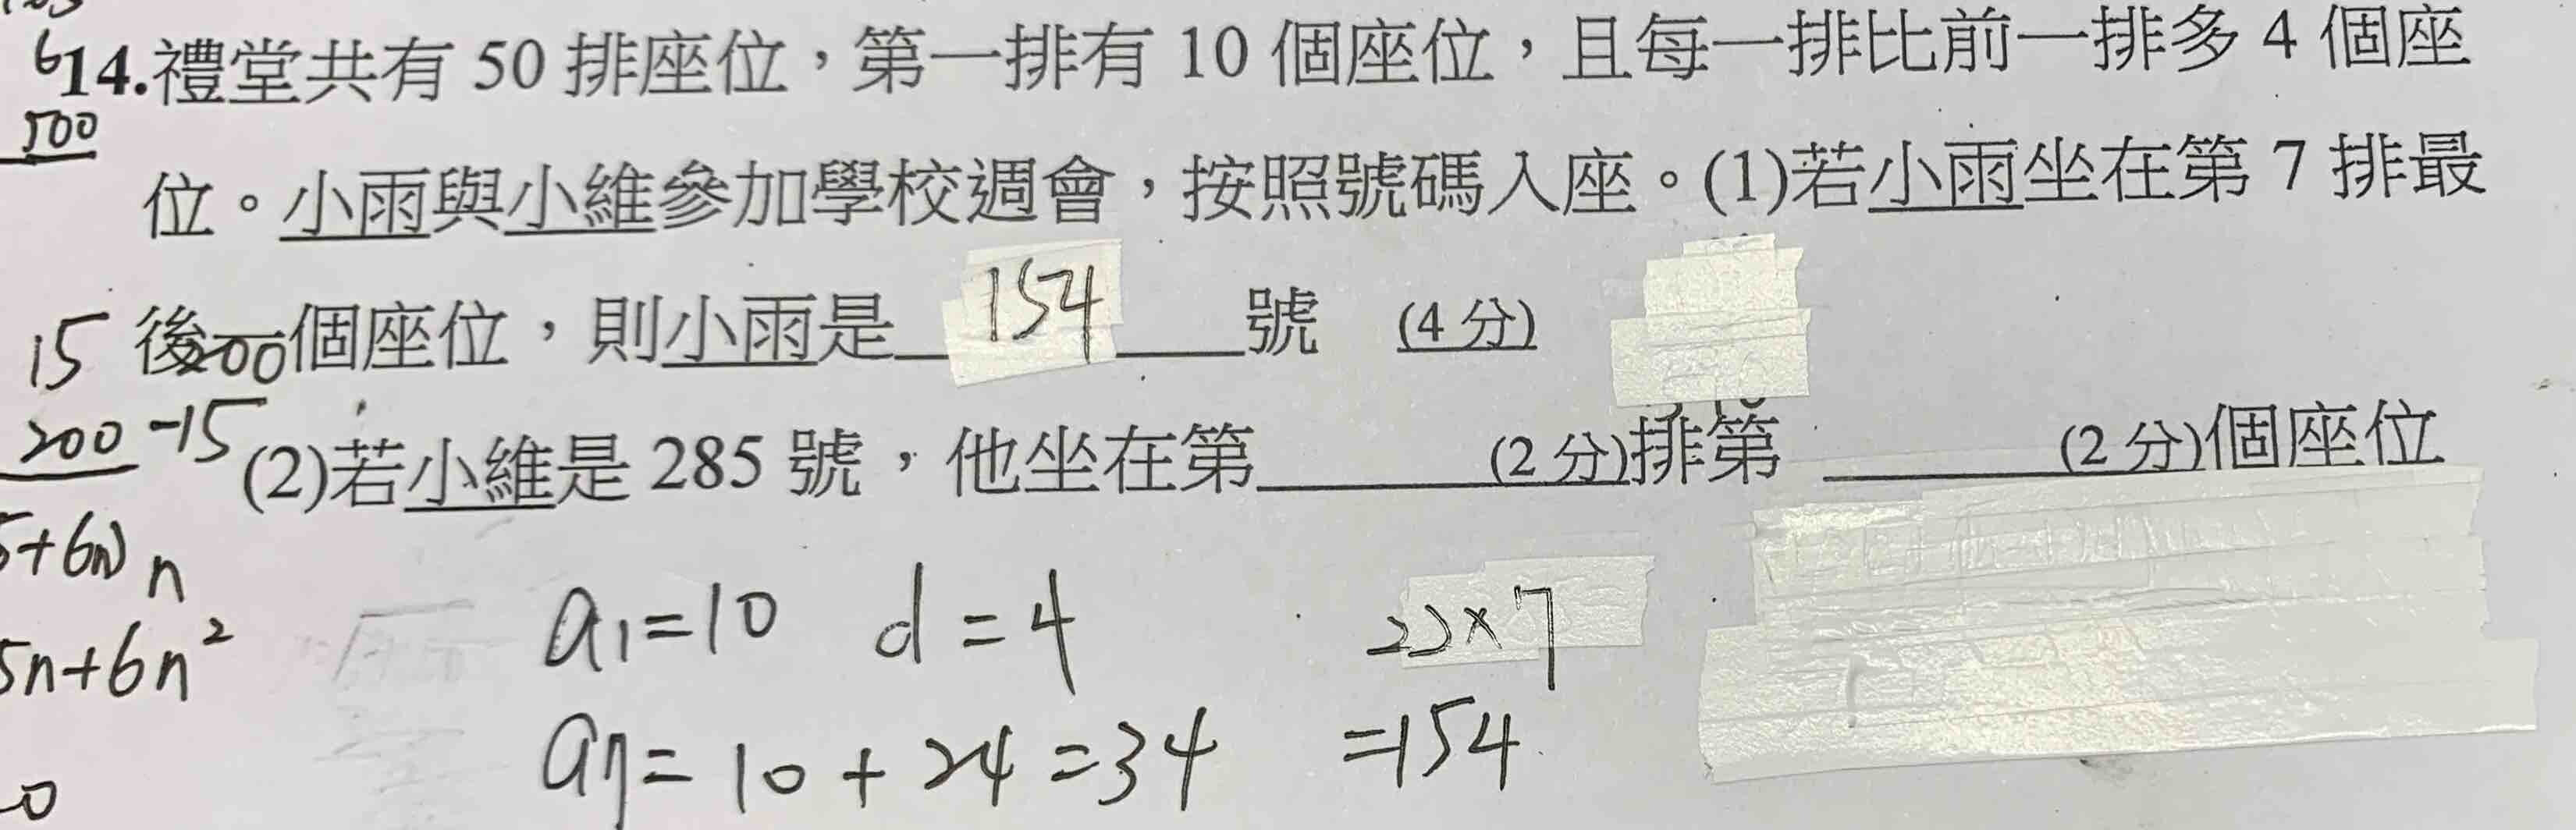 14.禮堂共有 50 排座位，第一排有 10 個座位，且每一排比前一排多 4 個座
500
位。小雨與小維參加學校週會，按照號碼入座。(1)若小雨坐在第 7 排最
15
後一個座位，則小雨是 154 號 (4 分)
200
200 -15
(2)若小維是 285 號，他坐在第 (2 分)排第 (2 分)個座位
5+6n) n
5n+6n²
a1=10 d=4
22×7
a7=10+24=34
=154
0